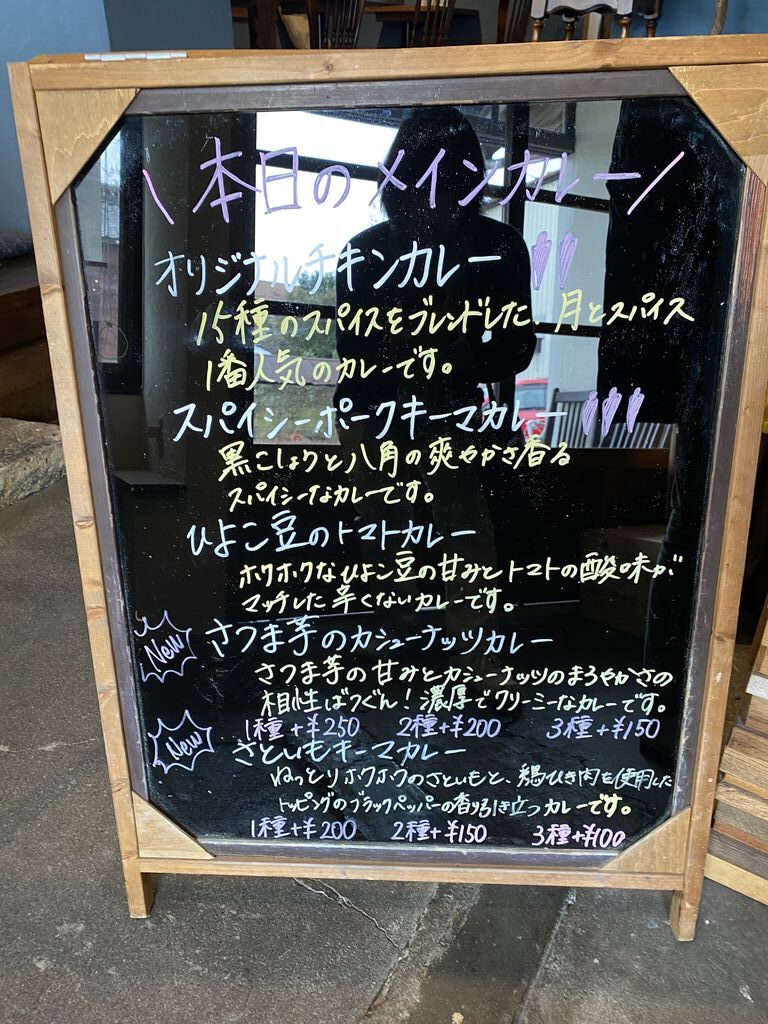 \ 本日のメインカレー /
オリジナルチキンカレー
15種のスパイスをブレンドした、月とスパイス
1番人気のカレーです。
スパイシーポークキーマカレー
黒こしょうと八角の爽やかさ香る
スパイシーなカレーです。
ひよこ豆のトマトカレー
ホクホクなひよこ豆の甘みとトマトの酸味が
マッチした辛くないカレーです。
New さつま芋のカシューナッツカレー
さつま芋の甘みとカシューナッツのまろやかさの
相性ばつぐん!濃厚でクリーミーなカレーです。
1種+¥250 2種+¥200 3種+¥150
New さといもキーマカレー
ねっとりホクホクのさといもと、鶏ひき肉を使用した
トッピングのブラックペッパーの香り引き立つカレーです。
1種+¥200 2種+¥150 3種+¥100